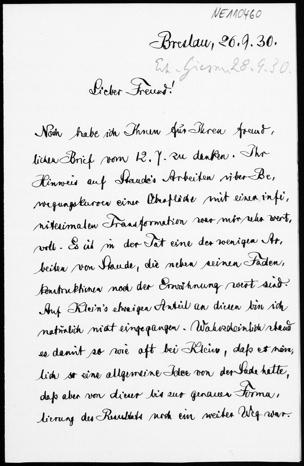 NE110460
Breslau, 26.9.30.
28.9.30.
Lieber Freund!
Noch habe ich Ihnen für Ihren freund,
lichen Brief vom 12.7. zu danken. Ihr
Hinweis auf Staude's Arbeiten über Be,
wegungskurven einer mit einer infi,
nitesimalen Transformation war mir sehr wert,
voll. Es ist in der Tat eine der wenigen Ar,
beiten von Staude, die neben seinen Faden,
konstruktionen noch der Erwähnung wert sind.
Auf Klein's etwaigen Anteil an diesen bin ich
natürlich nicht eingegangen. Wahrscheinlich stand
es damit so wie oft bei Klein, daß er näm,
lich so eine allgemeine Idee von der Sache hatte,
daß aber von dieser bis zur genauen Formu,
lierung des Resultats noch ein weiter Weg war.